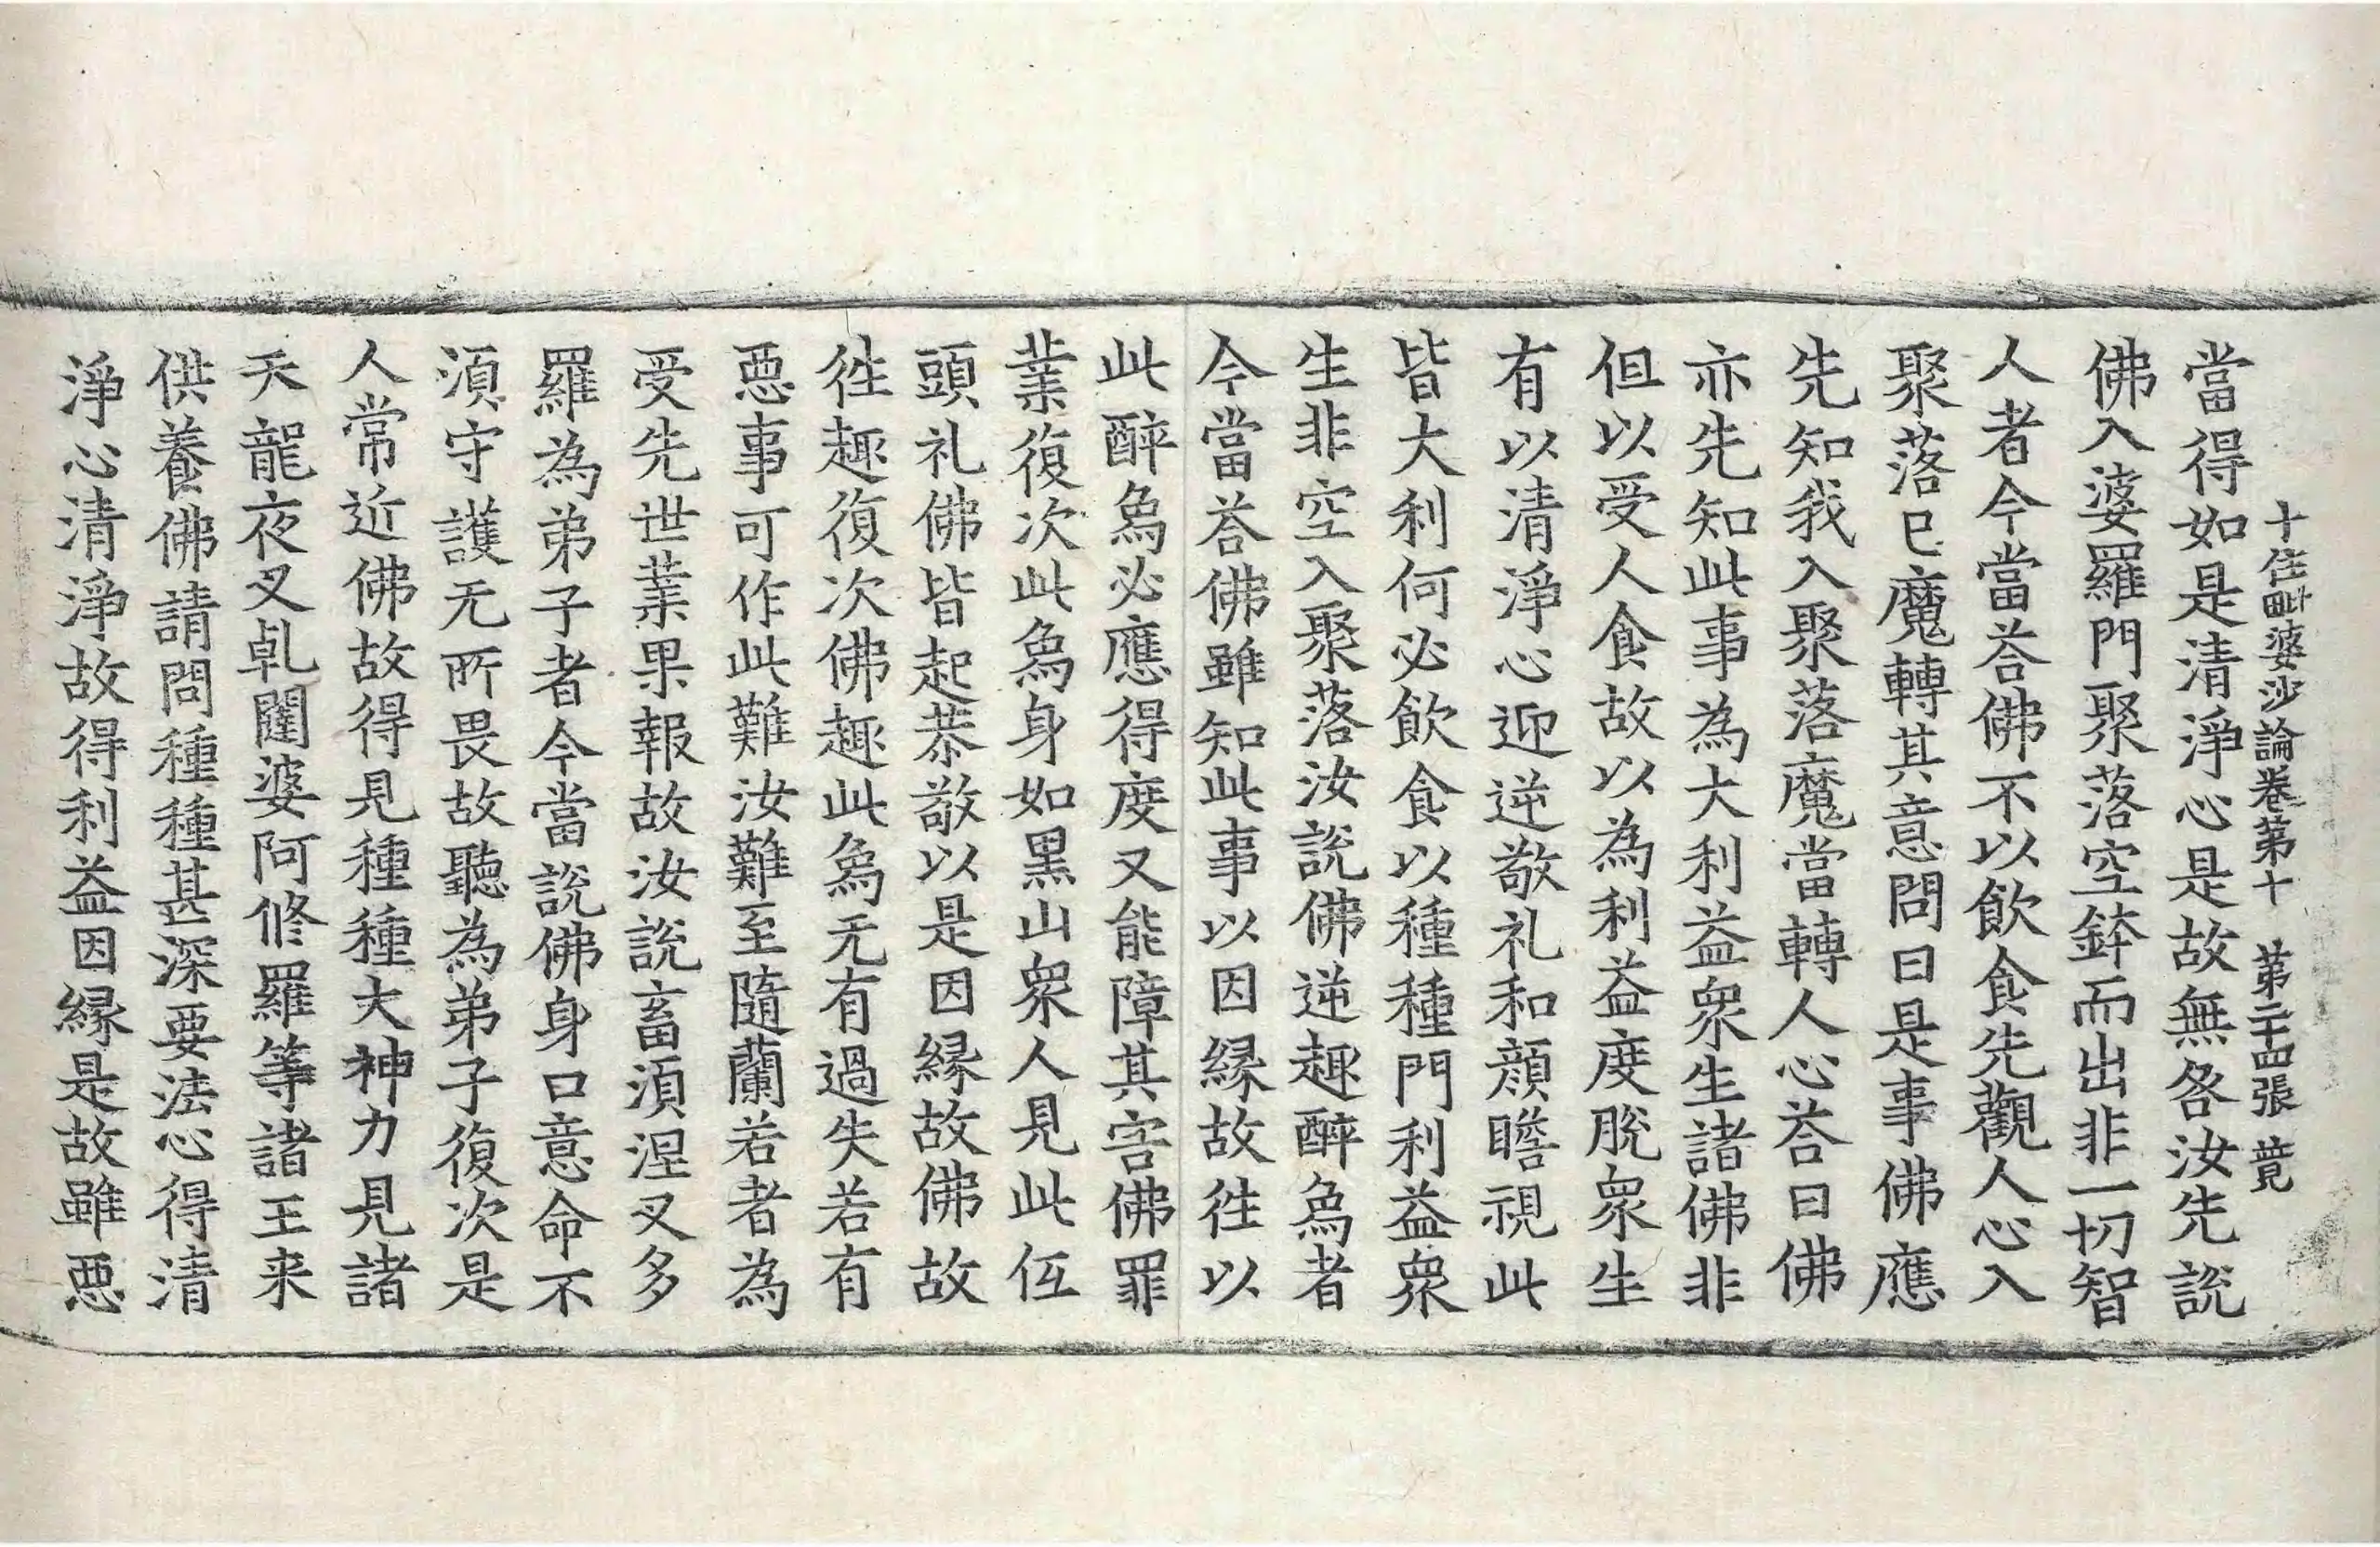 十住毗婆沙論卷第十　第二十四張　薨
當得如是清淨心是故無咎汝先說
佛入婆羅門聚落空鉢而出非一切智
人者今當荅佛不以飲食先觀人心入
聚落已魔轉其意問曰是事佛應
先知我入聚落魔當轉人心荅曰佛
亦先知此事為大利益衆生諸佛非
但以受人食故以為利益度脫衆生
有以清淨心迎逆敬礼和顔瞻視此
皆大利何必飲食以種種門利益衆
生非空入聚落汝說佛逆趣醉烏者
今當荅佛雖知此事以因縁故往以
此醉烏必應得度又能障其害佛罪
業復次此烏身如黒山衆人見此伍
頭礼佛皆起恭敬以是因縁故佛故
往趣復次佛趣此烏无有過失若有
惡事可作此難汝難至隨蘭若者為
受先世業果報故汝說畜湏涅叉多
羅為弟子者今當說佛身口意命不
湏守護无所畏故聽為弟子復次是
人常近佛故得見種種大神力見諸
天龍夜叉乹闥婆阿修羅等諸王来
供養佛請問種種甚深要法心得清
淨心清淨故得利益因縁是故雖惡